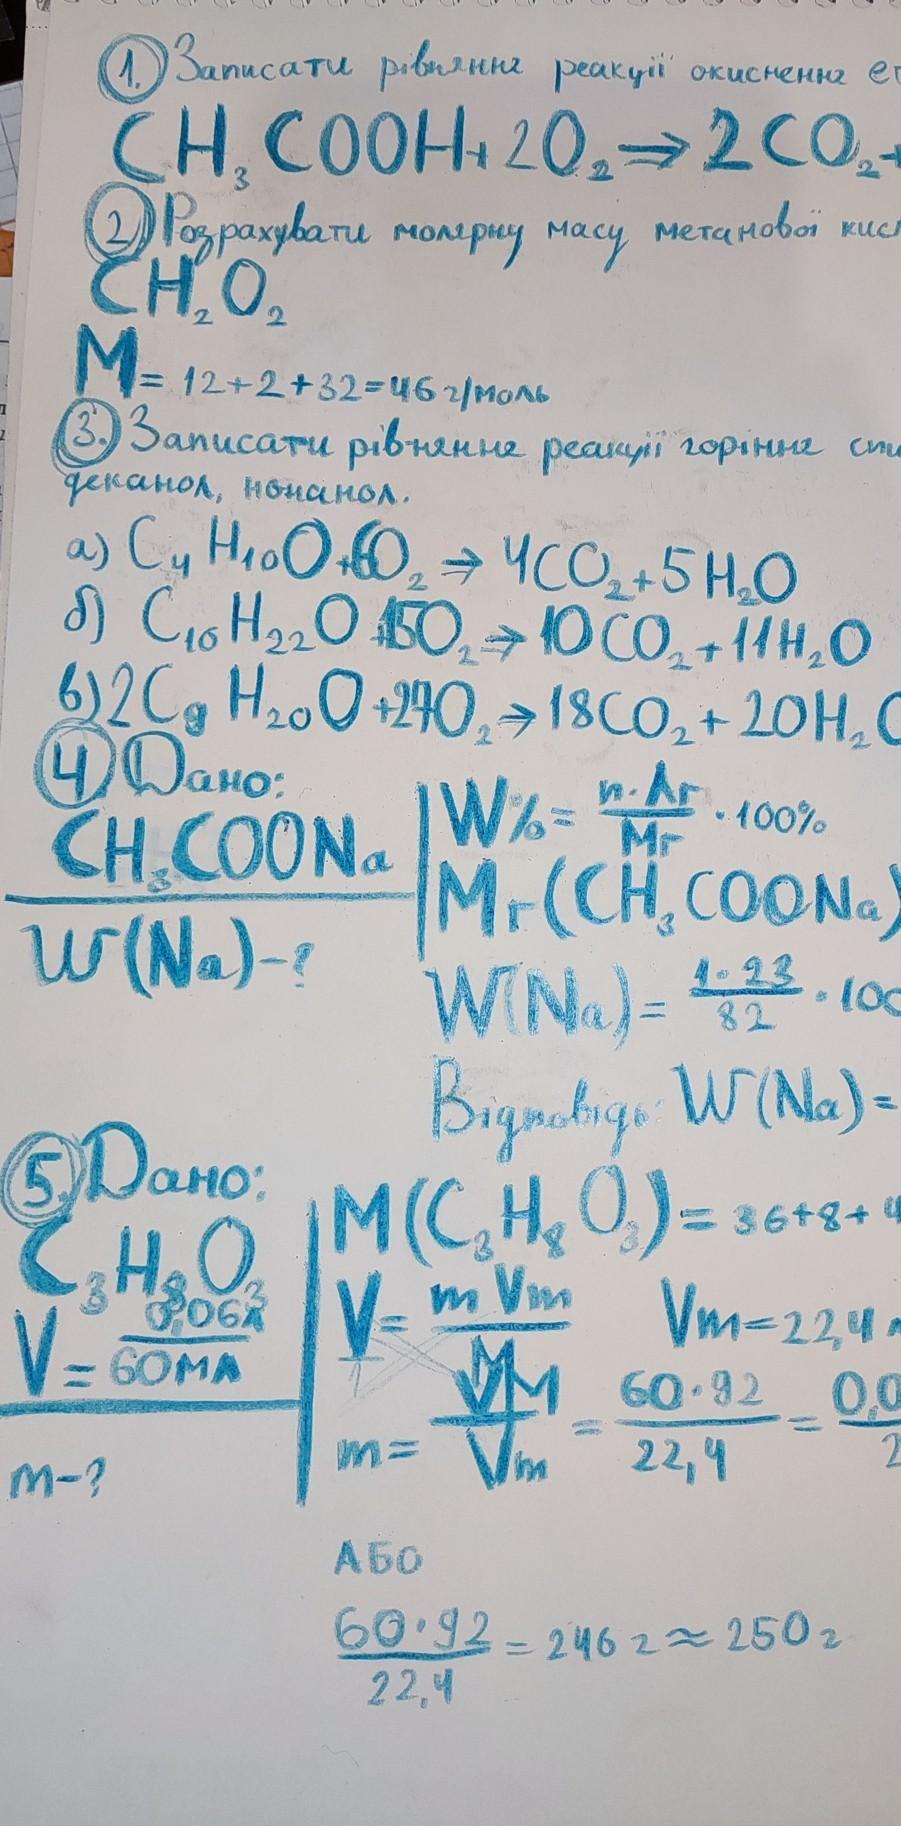 1. Записати рівняння реакції окиснення ет
CH₃COOH + 2O₂ ⇒ 2CO₂ +
2) Розрахувати молярну масу метанової кисл
CH₂O₂
M = 12+2+32=46 г/моль
3. Записати рівняння реакції горіння спи
деканол, нонанол.
а) C₄H₁₀O + 6O₂ ⇒ 4CO₂ + 5H₂O
б) C₁₀H₂₂O + 15O₂ ⇒ 10CO₂ + 11H₂O
в) 2C₉H₂₀O + 27O₂ ⇒ 18CO₂ + 20H₂O
4) Дано:
CH₃COONa
W(Na)-?
W% = n·Ar/Mr · 100%
Mr(CH₃COONa)
W(Na) = 1·23/82 · 100
Відповідь: W(Na) =
5. Дано:
C₃H₈O₃
0,06л
V = 60мл
m-?
M(C₃H₈O₃) = 36+8+4
V = m Vm/M Vm=22,4 л
m = VM/Vm = 60·92/22,4 = 0,0/2
АБО
60·92/22,4 = 246 г ≈ 250 г